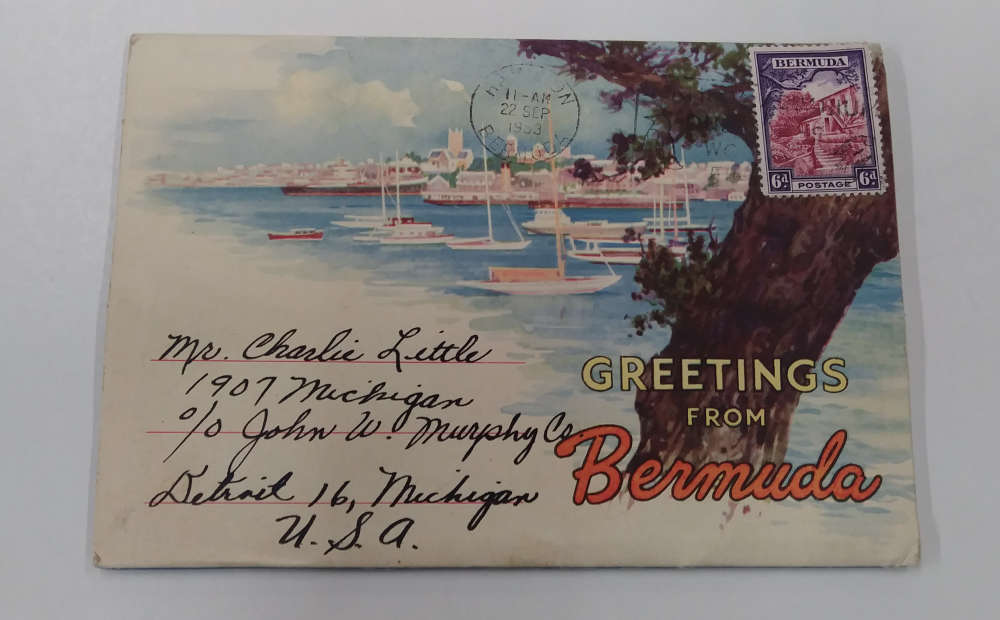 HAMILTON
11-AM
22 SEP
1953
BERMUDA
BERMUDA
6d POSTAGE 6d
Mr. Charlie Little
1907 Michigan
c/o John W. Murphy Co
Detroit 16, Michigan
U. S. A.
GREETINGS
FROM
Bermuda